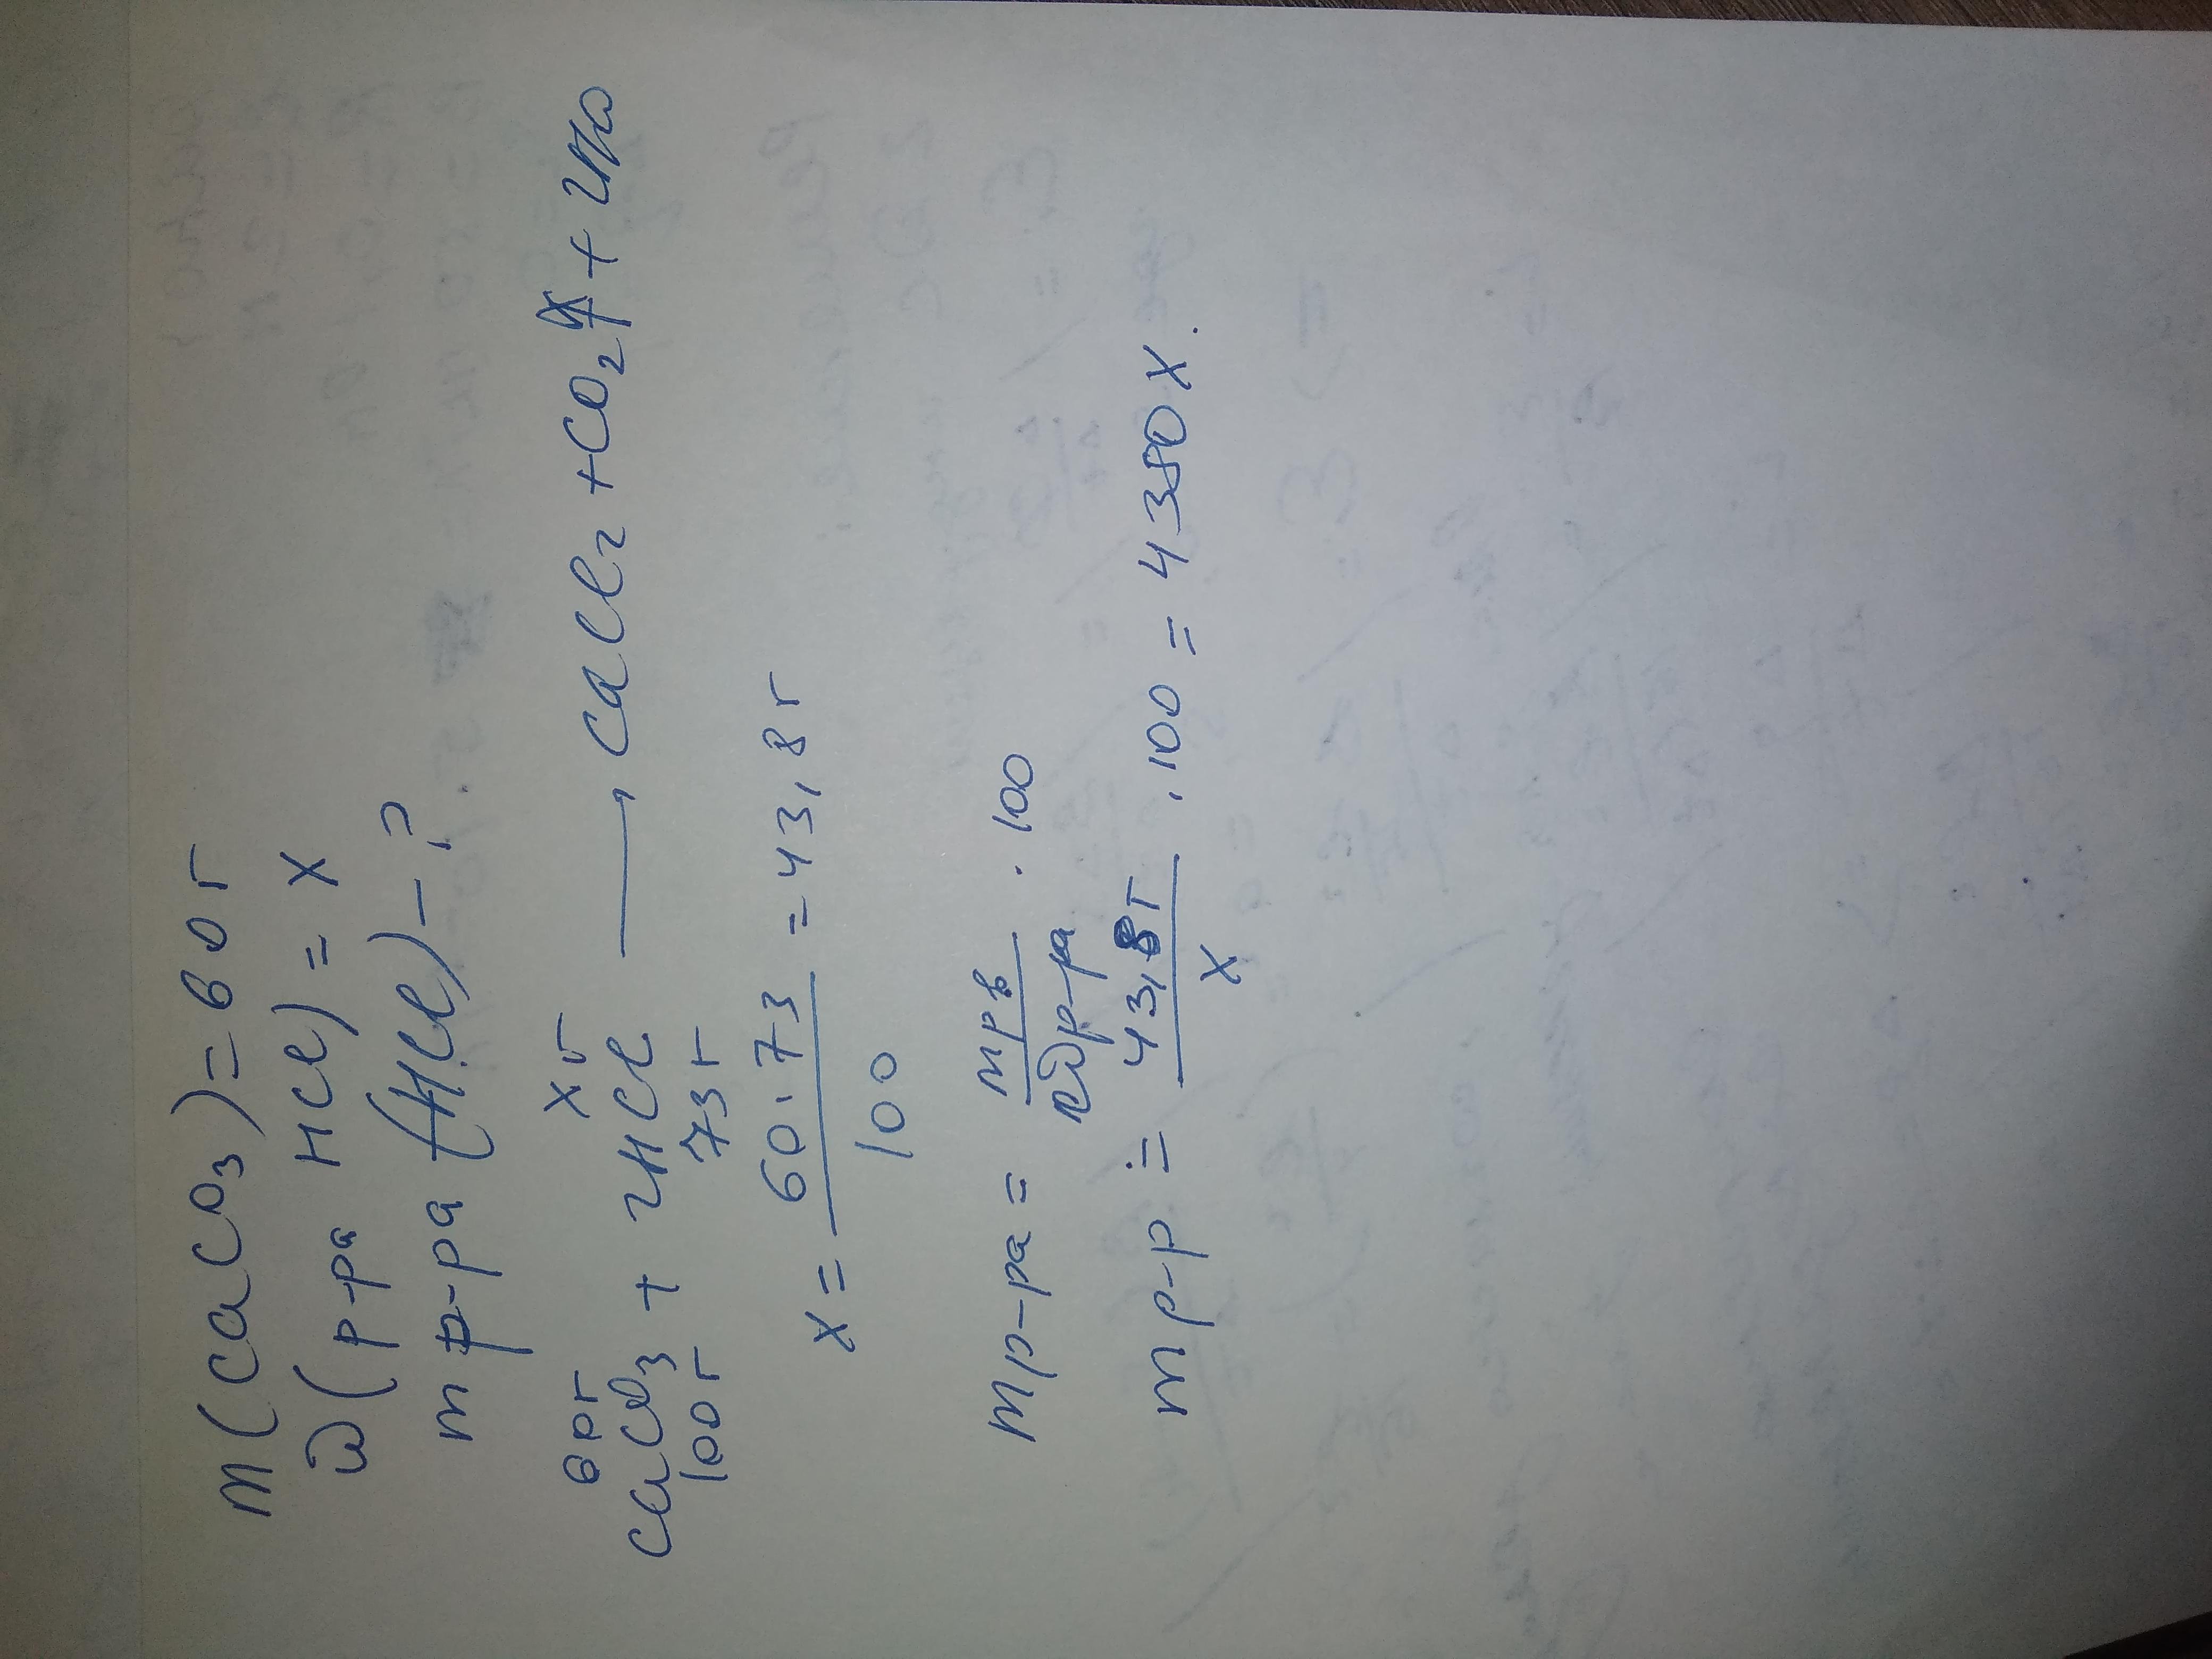 m(CaCO₃)=60г
ω(р-ра HCl)=x
m р-ра (HCl)-?
60г xг
CaCO₃ + 2HCl ⟶ CaCl₂ + CO₂ + H₂O
100г 73г
x = 60·73/100 = 43,8г
mр-ра = mрв/ωр-ра · 100
mр-р = 43,8г/x · 100 = 4380x.